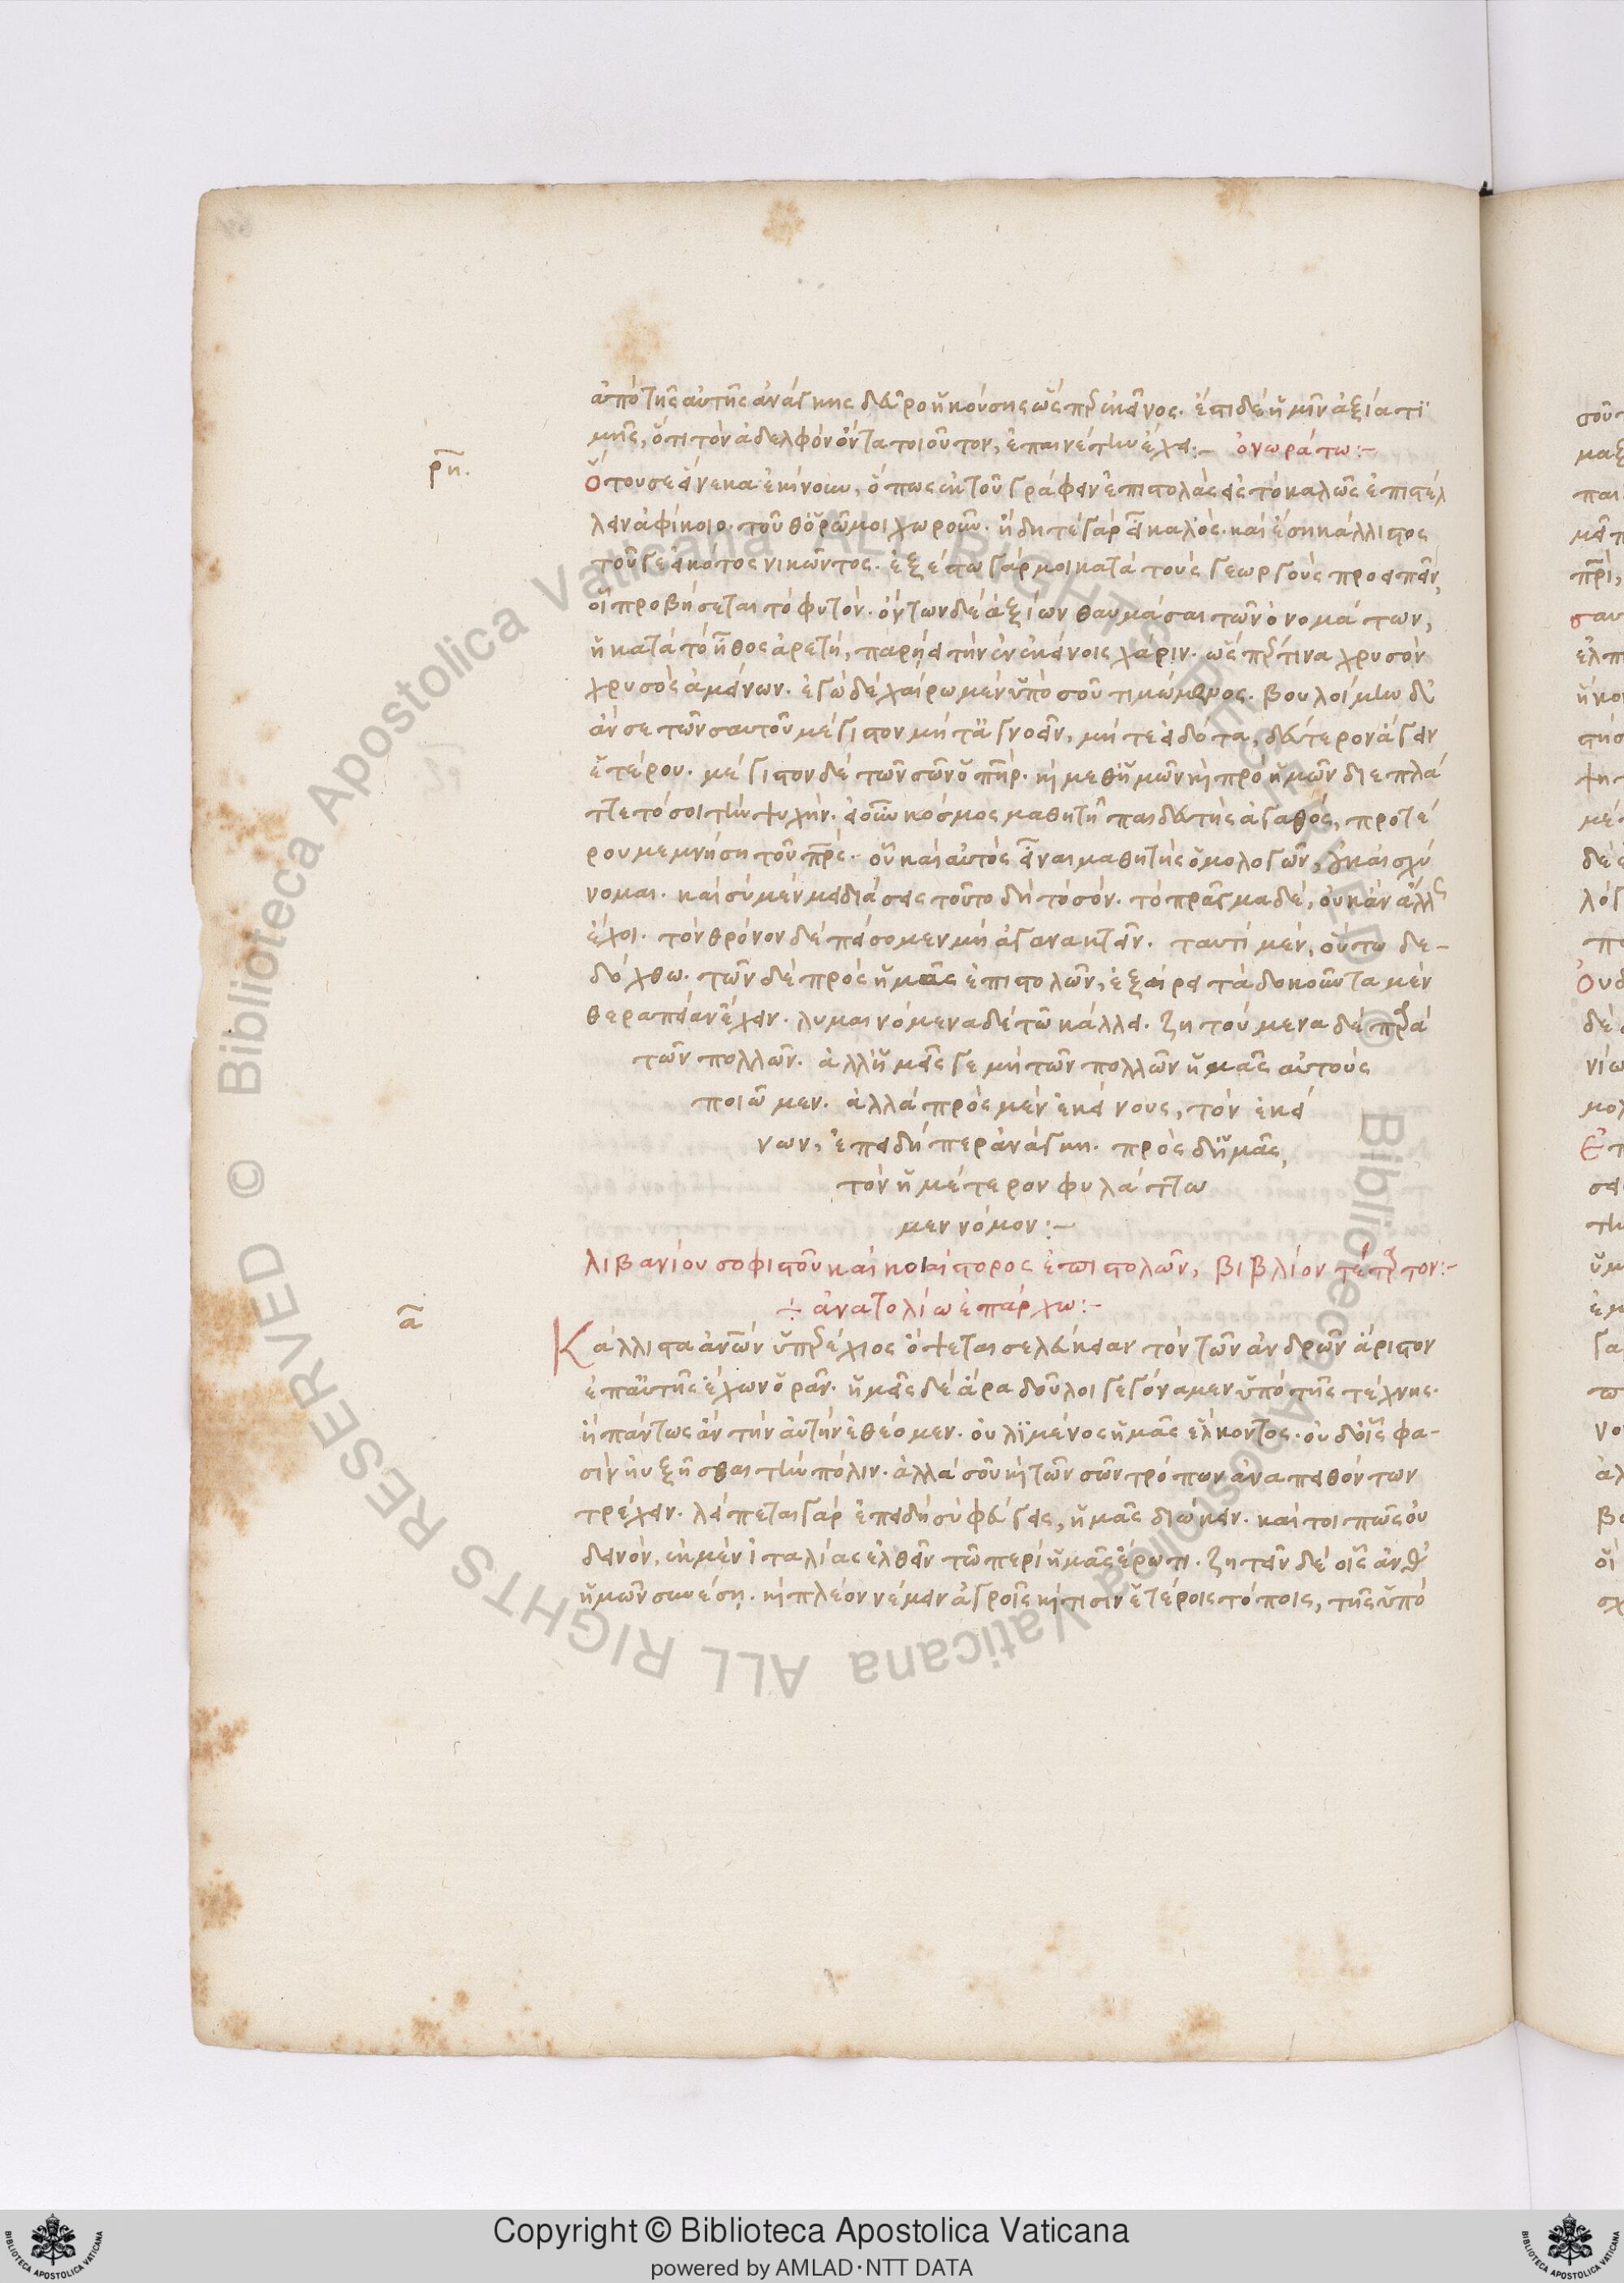 ἀπὸ τῆς αὐτῆς ἀνάγκης δεῦρο ἡκούσης ὥσπερ ἐκεῖνος. ἔστι δὲ ἡμῖν ἀξία τι
μῆς, ὅτι τὸν ἀδελφὸν ὄντα τοιοῦτον, ἐπαινέτην ἔχει:– ὀνωράτω:–
ρη.
Ὅτου σε εἵνεκα ἐκίνουν, ὅπως ἐκ τοῦ γράφειν ἐπιστολὰς εἰς τὸ καλῶς ἐπιστέλ
λειν ἀφίκοιο. τοῦθ' ὁρῶ μοι χωροῦν. ἤδη τε γὰρ εἶ καλὸς. καὶ ἔσῃ κάλλιστος
τοῦ γε εἰκότος νικῶντος. ἐξέστω γάρ μοι κατὰ τοὺς γεωργοὺς προειπεῖν,
οἷ προβήσεται τὸ φυτόν. ὄντων δὲ ἀξίων θαυμάσαι τῶν ὀνομάτων,
ἡ κατὰ τὸ ἦθος ἀρετὴ, παρῄει τὴν ἐν ἐκείνοις χάριν. ὥσπερ τινα χρυσὸν
χρυσὸς ἀμείνων. ἐγὼ δὲ χαίρω μὲν ὑπὸ σοῦ τιμώμενος. βουλοίμην δ'
ἄν σε τῶν σαυτοῦ μέγιστον μήτ' ἀγνοεῖν, μήτε εἰδότα, δεύτερον ἄγειν
ἑτέρου. μέγιστον δὲ τῶν σῶν ὁ πατήρ. καὶ μεθ' ἡμῶν καὶ πρὸ ἡμῶν διεπλά
ττετό σοι τὴν ψυχήν. εἰ οὖν κόσμος μαθητῇ παιδευτὴς ἀγαθὸς, προτέ
ρου μέμνησο τοῦ πατρός. οὗ καὶ αὐτὸς εἶναι μαθητὴς ὁμολογῶν, οὐκ αἰσχύ
νομαι. καὶ σὺ μὲν μειδιάσεις τοῦτο δὴ τὸ σόν. τὸ πρᾶγμα δὲ, οὐκ ἂν ἄλλως
ἔχοι. τὸν θρόνον δὲ πείσομεν μὴ ἀγανακτεῖν. ταυτὶ μὲν, οὕτω δε-
δόχθω. τῶν δὲ πρὸς ἡμᾶς ἐπιστολῶν, ἐξαίρει τὰ δοκοῦντα μὲν
θεραπείαν ἔχειν. λυμαινόμενα δὲ τῷ κάλλει. ζητούμενα δὲ παρὰ
τῶν πολλῶν. ἀλλ' ἡμεῖς γε μὴ τῶν πολλῶν ἡμᾶς αὐτοὺς
ποιῶμεν. ἀλλὰ πρὸς μὲν ἐκείνους, τὸν ἐκεί
νων, ἐπειδήπερ ἀνάγκη. πρὸς δ' ἡμᾶς,
τὸν ἡμέτερον φυλάττω
μεν νόμον:–
λιβανίου σοφιστοῦ καὶ κοιαίστορος ἐπιστολῶν, βιβλίον τέταρτον:–
÷ ἀνατολίω ἐπάρχω:–
α
Κάλλιστα ἀνθρώπων ὑπερέχιος ὄψεται σελεύκειαν τὸν τῶν ἀνδρῶν ἄριστον
ἐπ' αὐτῆς ἔχων ὁρᾶν. ἡμεῖς δὲ ἄρα δοῦλοι γεγόναμεν ὑπὸ τῆς τέχνης.
ἢ πάντως ἂν τὴν αὐτὴν ἐθέομεν. οὐ λιμένος ἡμᾶς ἕλκοντος. οὐδ' οἷς φα-
σὶν ηὐξῆσθαι τὴν πόλιν. ἀλλὰ σοῦ καὶ τῶν σῶν τρόπων ἀναπειθόντων
τρέχειν. λείπεται γὰρ ἐπειδὴ σὺ φεύγεις, ἡμᾶς διώκειν. καίτοι πῶς οὐ
δεινὸν, ἐκ μὲν ἰταλίας ἐλθεῖν τῷ περὶ ἡμᾶς ἔρωτι. ζητεῖν δὲ οἷς ἂν μεθ'
ἡμῶν συνέσῃ. καὶ πλέον νέμειν ἀγροῖς καί τισιν ἑτέροις τόποις, τῆς ὑπὸ
Copyright © Biblioteca Apostolica Vaticana
powered by AMLAD·NTT DATA